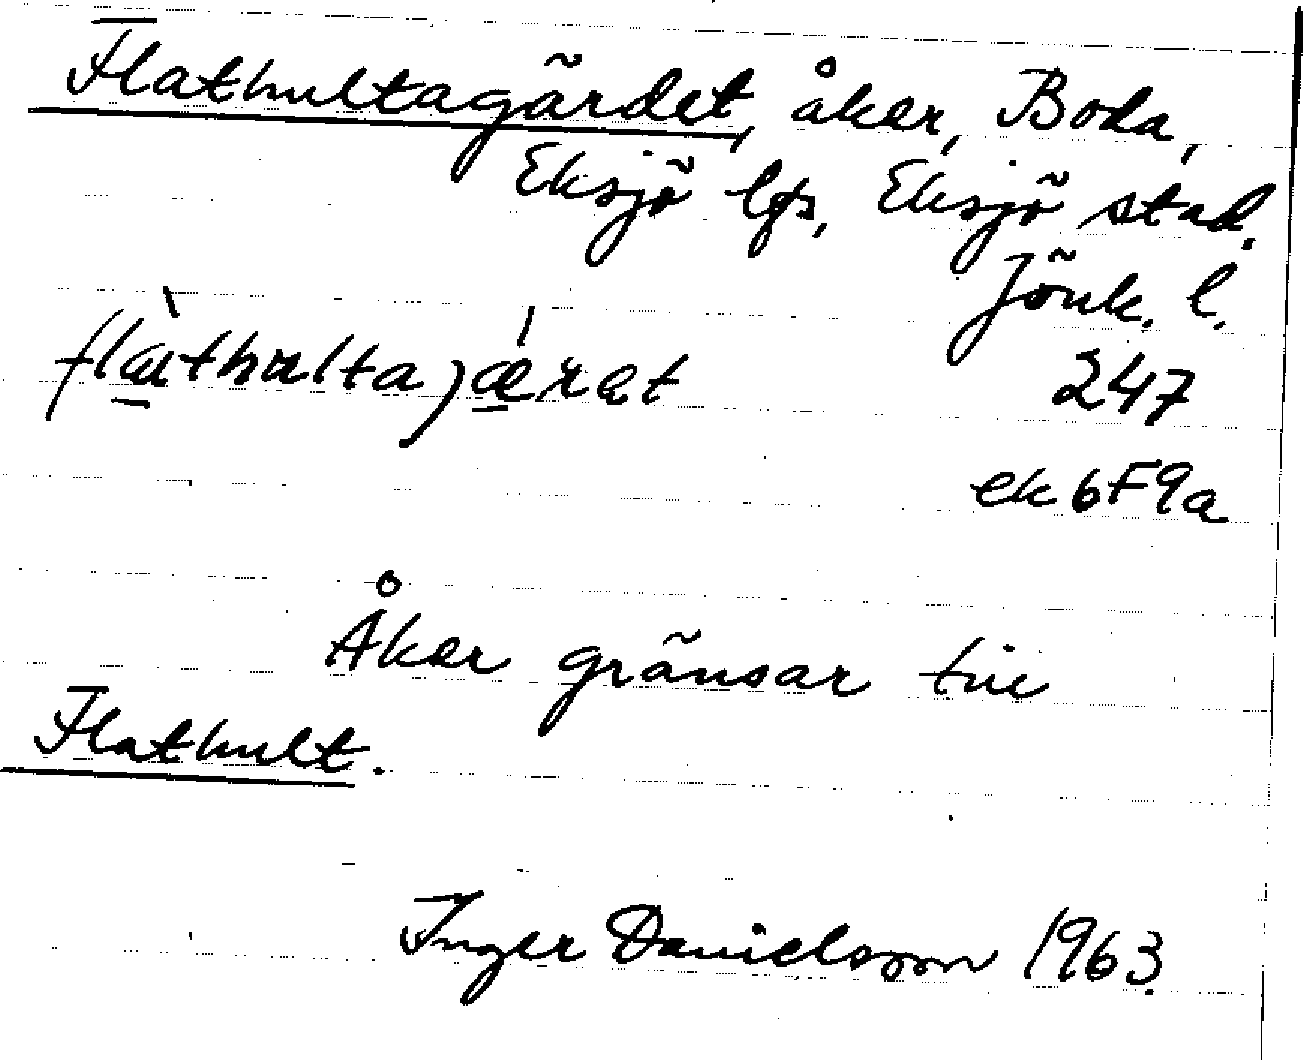 Flathultagärdet, åker, Boda,
Eksjö lfs, Eksjö stad.
Jönk. l.
247
ek 6F9a
Åker gränsar till
Flathult.
Inger Danielsson 1963.